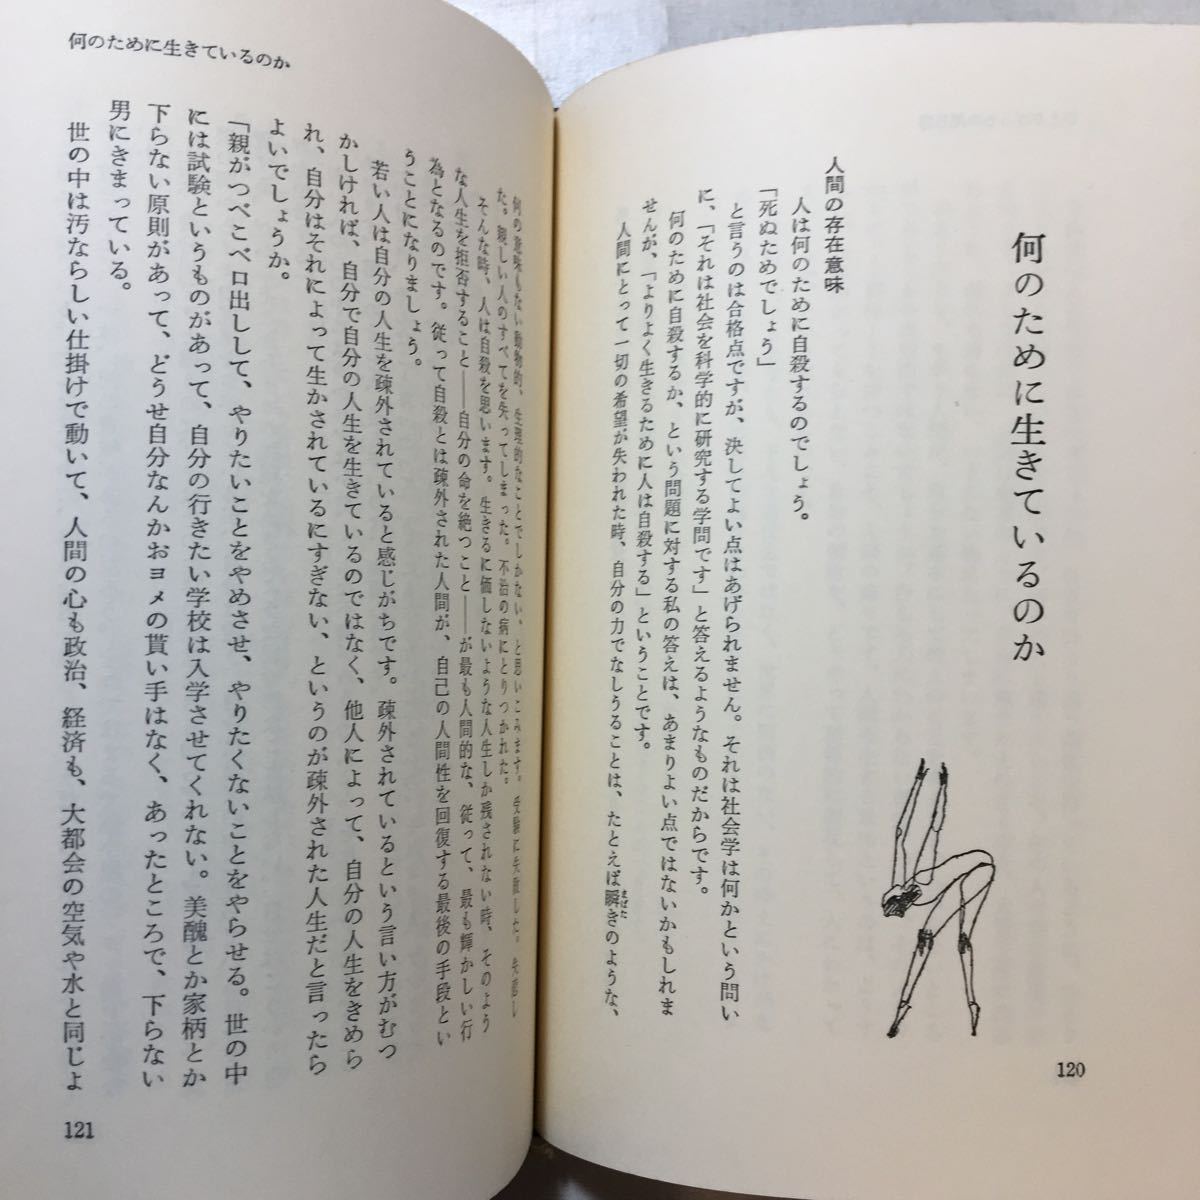 何のために生きているのか
人間の存在意味
人は何のために自殺するのでしょう。
「死ぬためでしょう」
と言うのは合格点ですが、決してよい点はあげられません。それは社会学は何かという問い
に、「それは社会を科学的に研究する学問です」と答えるようなものだからです。
何のために自殺するか、という問題に対する私の答えは、あまりよい点ではないかもしれま
せんが、「よりよく生きるために人は自殺する」ということです。
人間にとって一切の希望が失われた時、自分の力でなしうることは、たとえば瞬きのような、
まばた
120
何のために生きているのか
何の意味もない動物的、生理的なことでしかない、と思いこみます。受験に失敗した。失恋し
た。親しい人のすべてを失ってしまった。不治の病にとりつかれた。
そんな時、人は自殺を思います。生きるに価しないような人生しか残されない時、そのよう
な人生を拒否すること――自分の命を絶つこと――が最も人間的な、従って、最も輝かしい行
為となるのです。従って自殺とは疎外された人間が、自己の人間性を回復する最後の手段とい
うことになりましょう。
若い人は自分の人生を疎外されていると感じがちです。疎外されているという言い方がむつ
かしければ、自分で自分の人生を生きているのではなく、他人によって、自分の人生をきめら
れ、自分はそれによって生かされているにすぎない、というのが疎外された人生だと言ったら
よいでしょうか。
「親がつべこべ口出しして、やりたいことをやめさせ、やりたくないことをやらせる。世の中
には試験というものがあって、自分の行きたい学校は入学させてくれない。美醜とか家柄とか
下らない原則があって、どうせ自分なんかおヨメの貰い手はなく、あったところで、下らない
男にきまっている。
世の中は汚ならしい仕掛けで動いて、人間の心も政治、経済も、大都会の空気や水と同じよ
121